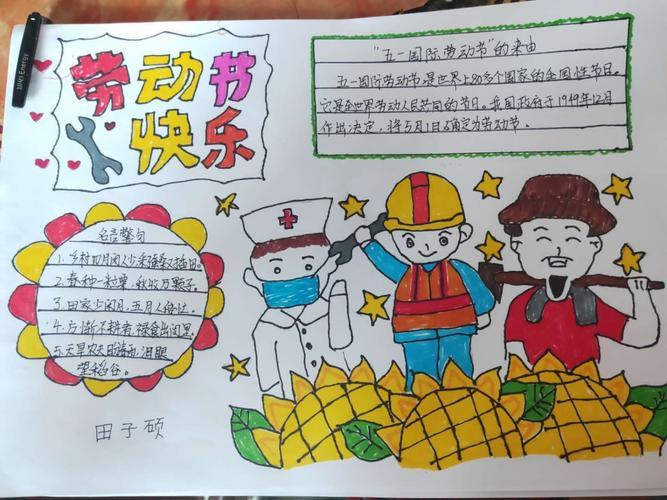 劳动节
快乐
"五一国际劳动节"的来由
五一国际劳动节是世界上80多个国家的全国性节日。
它是全世界劳动人民共同的节日。我国政府于1949年12月
作出决定,将5月1日确定为劳动节。
名言警句
1.乡村四月闲人少,才了蚕桑又插田。
2.春种一粒粟,秋收万颗子。
3.田家少闲月,五月人倍忙。
4.力惭不耕者,禄食出闾里
5.天旱农夫日
望稻谷。
田子硕